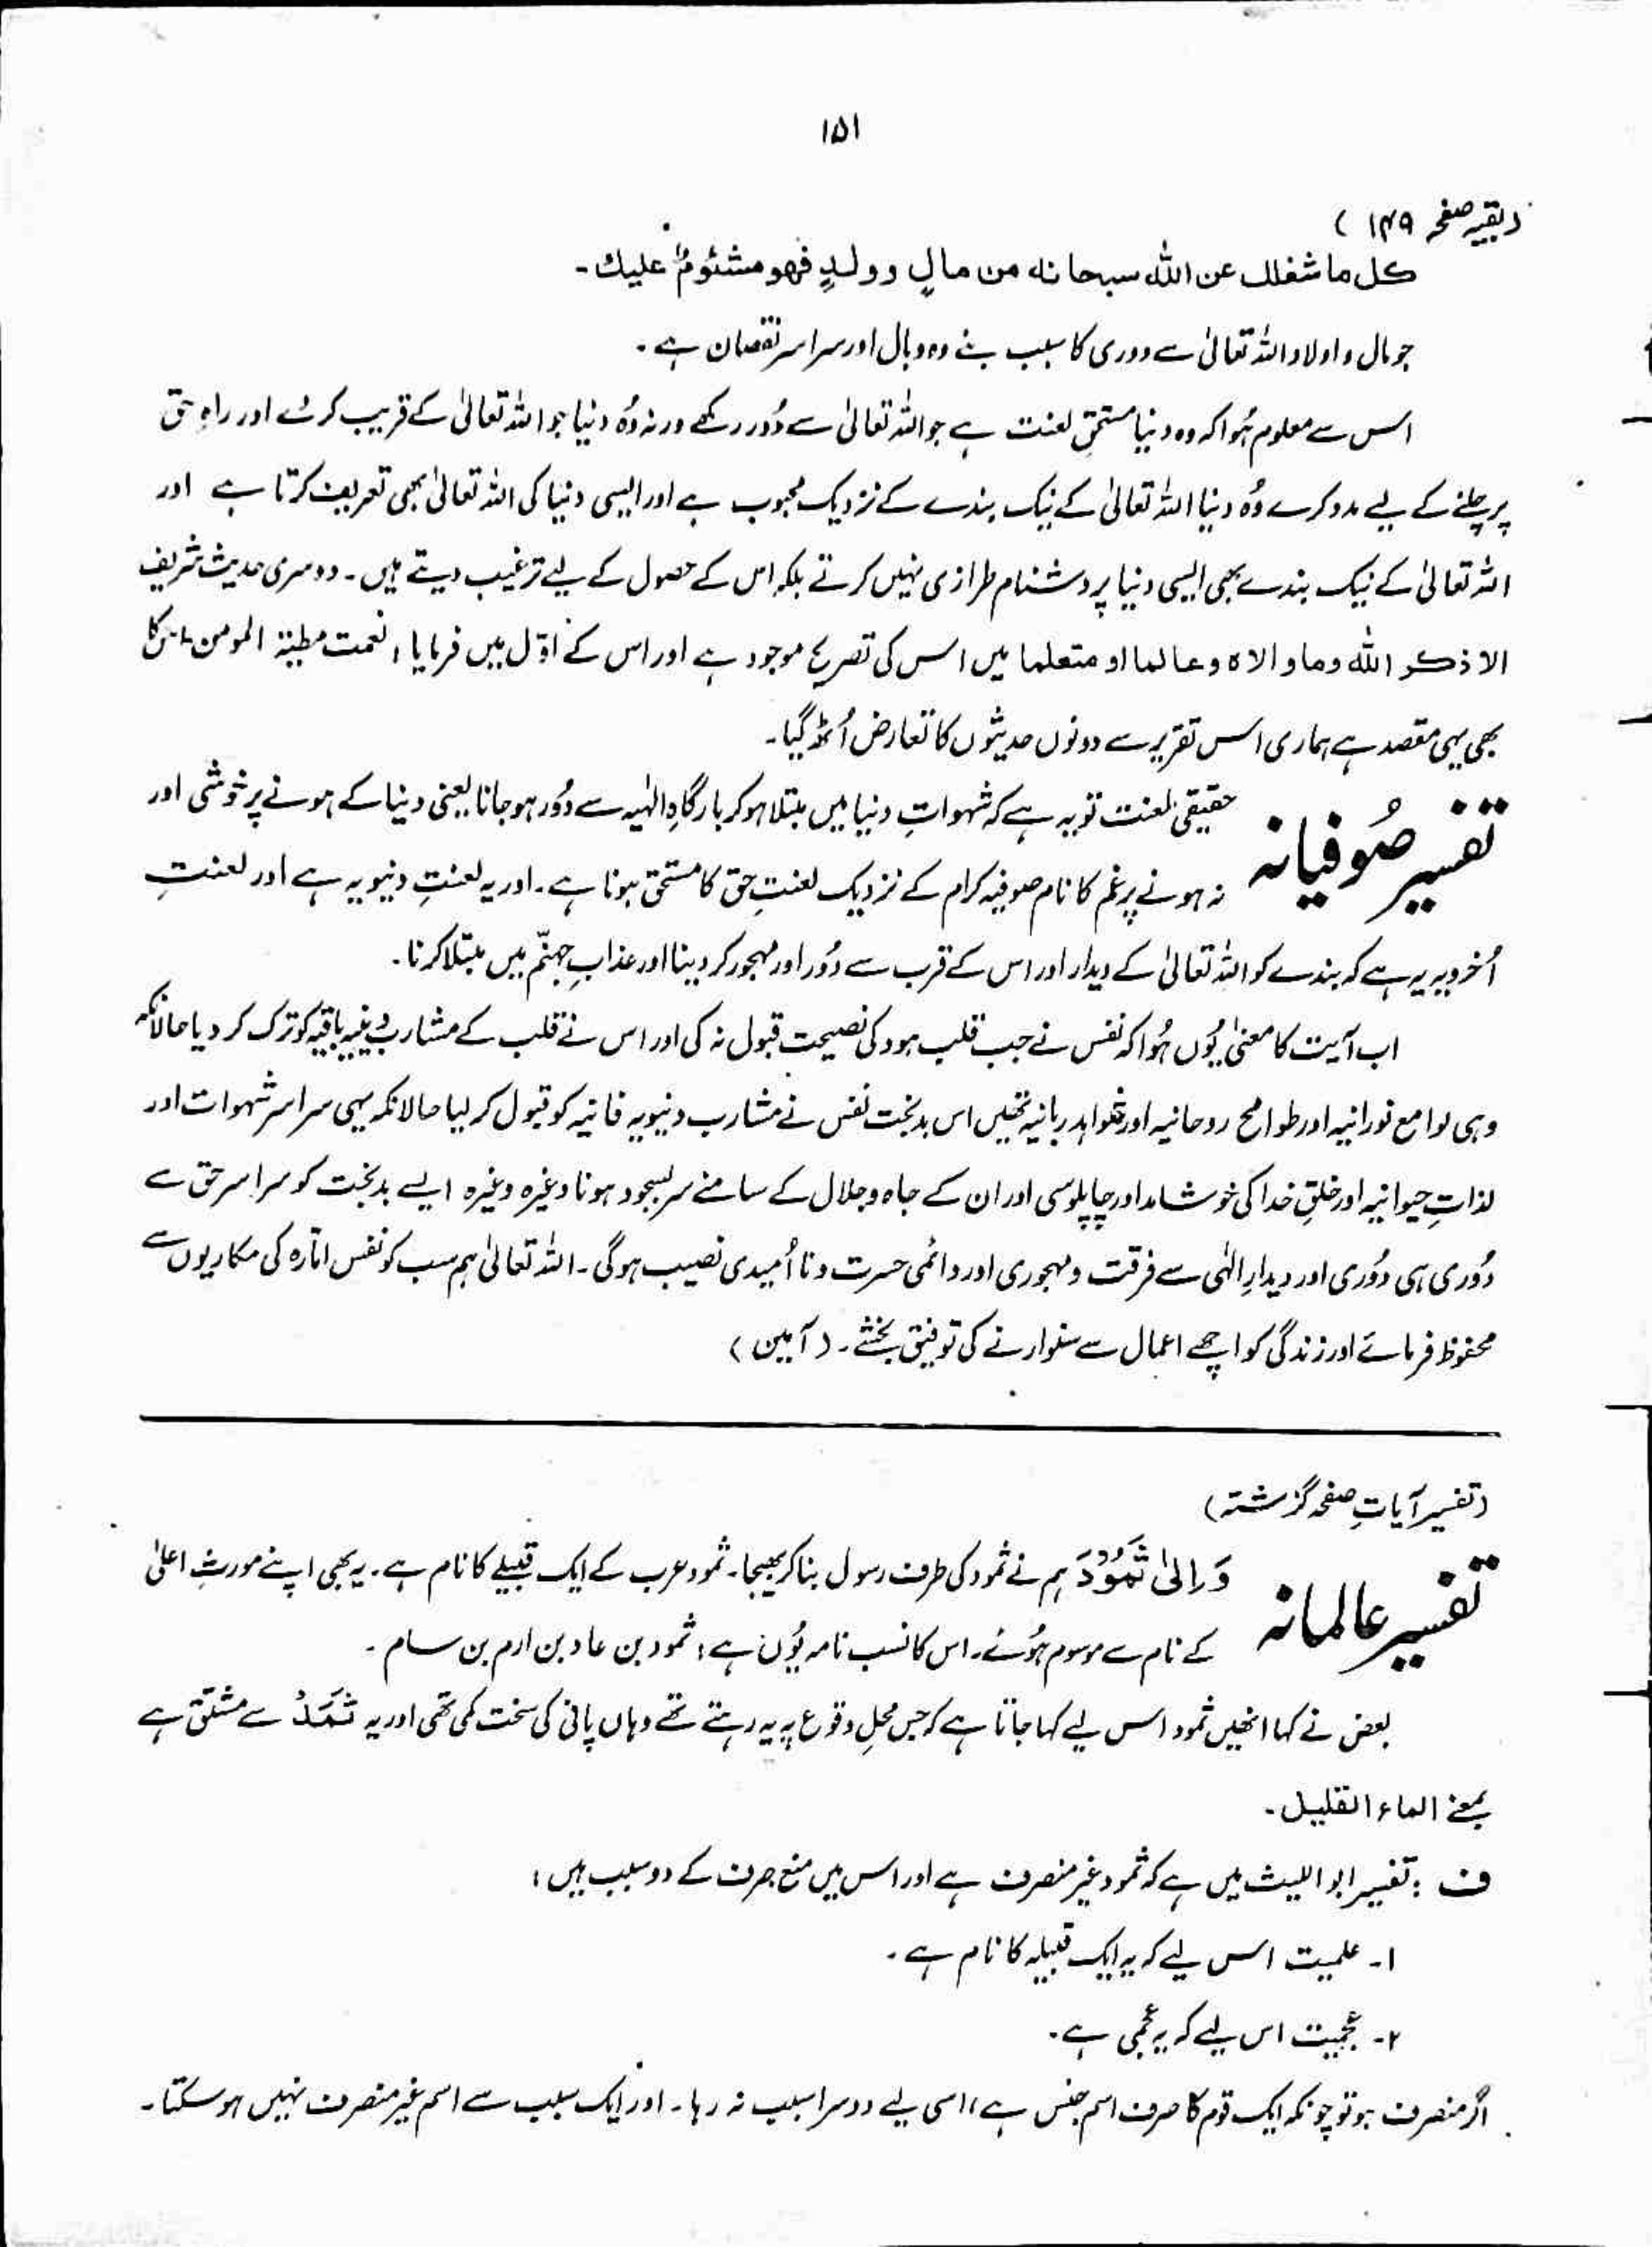 ۱۵۱
(بقیہ صفحہ ۱۴۹)
کل ما شغلك عن الله سبحانه من مالٍ و ولدٍ فهو مشئومٌ عليك۔
جو مال و اولاد اللہ تعالیٰ سے دوری کا سبب بنے وہ وبال اور سراسر نقصان ہے۔
اس سے معلوم ہُوا کہ وہ دنیا مستحقِ لعنت ہے جو اللہ تعالیٰ سے دُور رکھے ورنہ وُہ دنیا جو اللہ تعالیٰ کے قریب کرے اور راہِ حق
پر چلنے کے لیے مدد کرے وُہ دنیا اللہ تعالیٰ کے نیک بندے کے نزدیک محبوب ہے اور ایسی دنیا کی اللہ تعالیٰ بھی تعریف کرتا ہے اور
اللہ تعالیٰ کے نیک بندے بھی ایسی دنیا پر دشنام طرازی نہیں کرتے بلکہ اس کے حصول کے لیے ترغیب دیتے ہیں۔ دوسری حدیث شریف
الا ذكر الله وما والاه وعالما او متعلما میں اس کی تصریح موجود ہے اور اس کے اوّل میں فرمایا: نعمت مطية المومن، اس کا
بھی یہی مقصد ہے ہماری اس تقریر سے دونوں حدیثوں کا تعارض اُٹھ گیا۔
تفسیر صُوفیانہ حقیقی لعنت تو یہ ہے کہ شہواتِ دنیا میں مبتلا ہو کر بارگاہِ الٰہیہ سے دُور ہو جانا یعنی دنیا کے ہونے پر خوشی اور
نہ ہونے پر غم کا نام صوفیہ کرام کے نزدیک لعنتِ حق کا مستحق ہونا ہے۔ اور یہ لعنتِ دنیویہ ہے اور لعنتِ
اُخرویہ یہ ہے کہ بندے کو اللہ تعالیٰ کے دیدار اور اس کے قرب سے دُور اور مہجور کر دینا اور عذابِ جہنّم میں مبتلا کرنا۔
اب آیت کا معنیٰ یُوں ہُوا کہ نفس نے جب قلب ہود کی نصیحت قبول نہ کی اور اس نے قلب کے مشارب دینیہ باقیہ کو ترک کر دیا حالانکہ
وہی لوامع نورانیہ اور طوامح روحانیہ اور شواہد ربانیہ تھیں اس بدبخت نفس نے مشارب دنیویہ فانیہ کو قبول کر لیا حالانکہ یہی سراسر شہوات اور
لذاتِ حیوانیہ اور خلقِ خدا کی خوشامد اور چاپلوسی اور ان کے جاہ و جلال کے سامنے سر بسجود ہونا وغیرہ وغیرہ ایسے بدبخت کو سراسر حق سے
دُوری ہی دُوری اور دیدارِ الٰہی سے فرقت و مہجوری اور دائمی حسرت و نا اُمیدی نصیب ہوگی۔ اللہ تعالیٰ ہم سب کو نفس امّارہ کی مکاریوں سے
محفوظ فرمائے اور زندگی کو اچھے اعمال سے سنوارنے کی توفیق بخشے۔ (آمین)
(تفسیر آیاتِ صفحہ گزشتہ)
تفسیر عالمانہ وَاِلیٰ ثَمُوْدَ ہم نے ثمود کی طرف رسول بنا کر بھیجا۔ ثمود عرب کے ایک قبیلے کا نام ہے۔ یہ بھی اپنے مورثِ اعلیٰ
کے نام سے موسوم ہُوئے۔ اس کا نسب نامہ یُوں ہے: ثمود بن عاد بن ارم بن سام۔
بعض نے کہا انھیں ثمود اس لیے کہا جاتا ہے کہ جس محلِ وقوع پہ یہ رہتے تھے وہاں پانی کی سخت کمی تھی اور یہ ثَمَدٌ سے مشتق ہے
بمعنے الماء القلیل۔
ف : تفسیر ابو اللیث میں ہے کہ ثمود غیر منصرف ہے اور اس میں منع صرف کے دو سبب ہیں:
۱۔ علمیت اس لیے کہ یہ ایک قبیلہ کا نام ہے۔
۲۔ عجمیت اس لیے کہ یہ عجمی ہے۔
اگر منصرف ہو تو چونکہ ایک قوم کا صرف اسم جنس ہے، اسی لیے دوسرا سبب نہ رہا۔ اور ایک سبب سے اسم غیر منصرف نہیں ہو سکتا۔